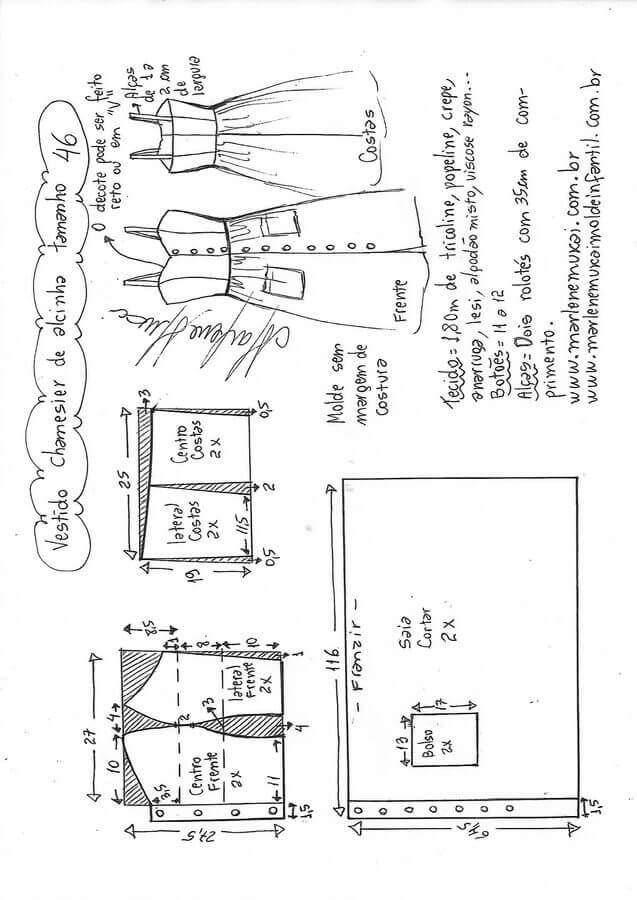 Vestido Chamesier de alcinha tamanho 46
O decote pode ser feito
reto ou em "V"
Alças
de 1 a
2 cm
de
largura
Costas
Frente
Molde sem
margem de
costura
Tecido = 1,80m de tricoline, popeline, crepe,
anarruga, lesi, algodão misto, viscose rayon...
Botões = 11 a 12
Alças = Dois rolotês com 35cm de com-
primento.
www.marlenemukai.com.br
www.marlenemukaimoldeinfantil.com.br
27
10
4
8,5
27,5
3,5
1
8
10
2
3
Centro
Frente
2x
lateral
Frente
2x
11
4
1
1,5
25
3
19
lateral
Costas
2x
Centro
Costas
2x
11,5
0,5
2
0,5
116
- Franzir -
Saia
Cortar
2x
13
17
Bolso
2x
1,5